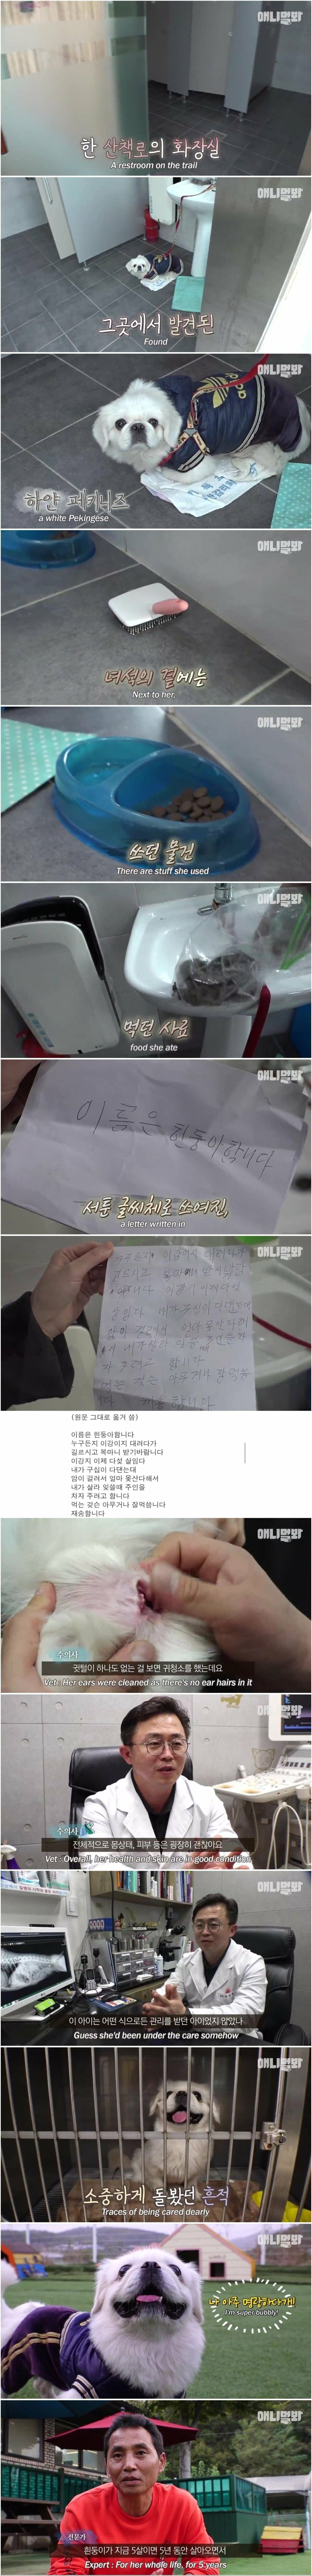 애니멀봐
한 산책로의 화장실
A restroom on the trail
애니멀봐
그곳에서 발견된
Found
애니멀봐
하얀 페키니즈
a white Pekingese
애니멀봐
녀석의 곁에는
Next to her,
애니멀봐
쓰던 물건
There are stuff she used
애니멀봐
먹던 사료
food she ate
애니멀봐
이름은 흰둥이합니다
서툰 글씨체로 쓰여진,
a letter written in
애니멀봐
(원문 그대로 옮겨 씀)
이름은 흰둥아합니다
누구든지 이강이지 대려다가
길르시고 복마니 받기바랍니다
이강지 이제 다섯 살임다
내가 구십이 다댄는대
암이 걸려서 얼마 못산다해서
내가 살라 잊쓸때 주인을
차자 주러고 합니다
먹는 것슨 아무거나 잘먹씀니다
재송합니다
애니멀봐
수의사
귓털이 하나도 없는 걸 보면 귀청소를 했는데요
Vet : Her ears were cleaned as there's no ear hairs in it
애니멀봐
수의사
전체적으로 몸상태, 피부 등은 굉장히 괜찮아요
Vet : Overall, her health and skin are in good condition
애니멀봐
이 아이는 어떤 식으로든 관리를 받던 아이였지 않았나
Guess she'd been under the care somehow
애니멀봐
소중하게 돌봤던 흔적
Traces of being cared dearly
애니멀봐
나 아주 명랑하다개!
I'm super bubbly!
애니멀봐
전문가
흰둥이가 지금 5살이면 5년 동안 살아오면서
Expert : For her whole life, for 5 years